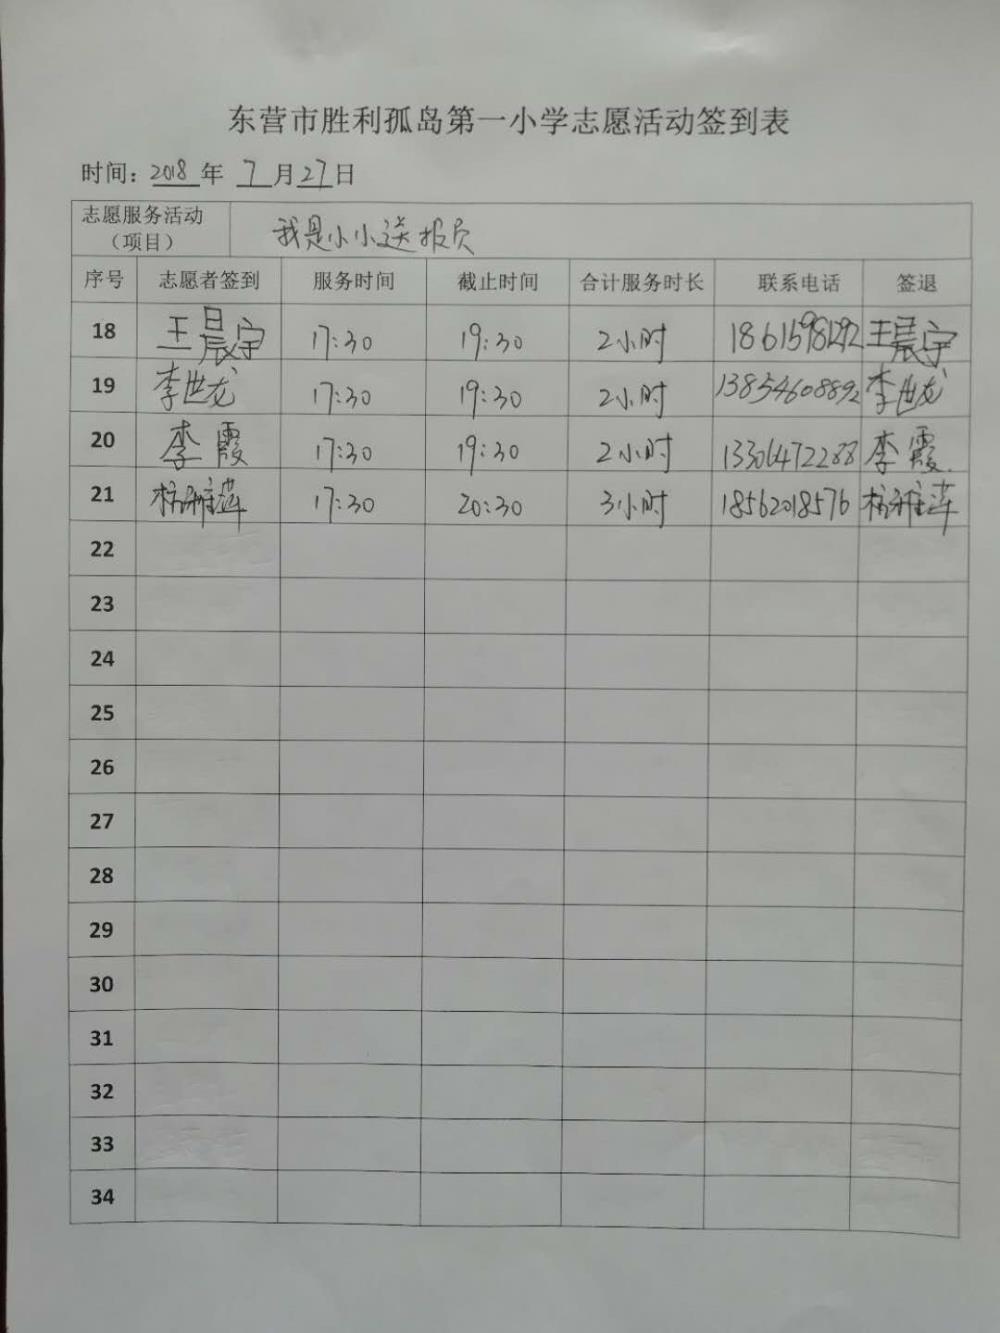 东营市胜利孤岛第一小学志愿活动签到表
时间：2018年 7月27日
志愿服务活动（项目） 我是小小送报员
序号 志愿者签到 服务时间 截止时间 合计服务时长 联系电话 签退
18 王晨宇 17:30 19:30 2小时 18615981292 王晨宇
19 李世龙 17:30 19:30 2小时 13854608892 李世龙
20 李霞 17:30 19:30 2小时 13306472288 李霞
21 17:30 20:30 3小时 18562018576
22
23
24
25
26
27
28
29
30
31
32
33
34